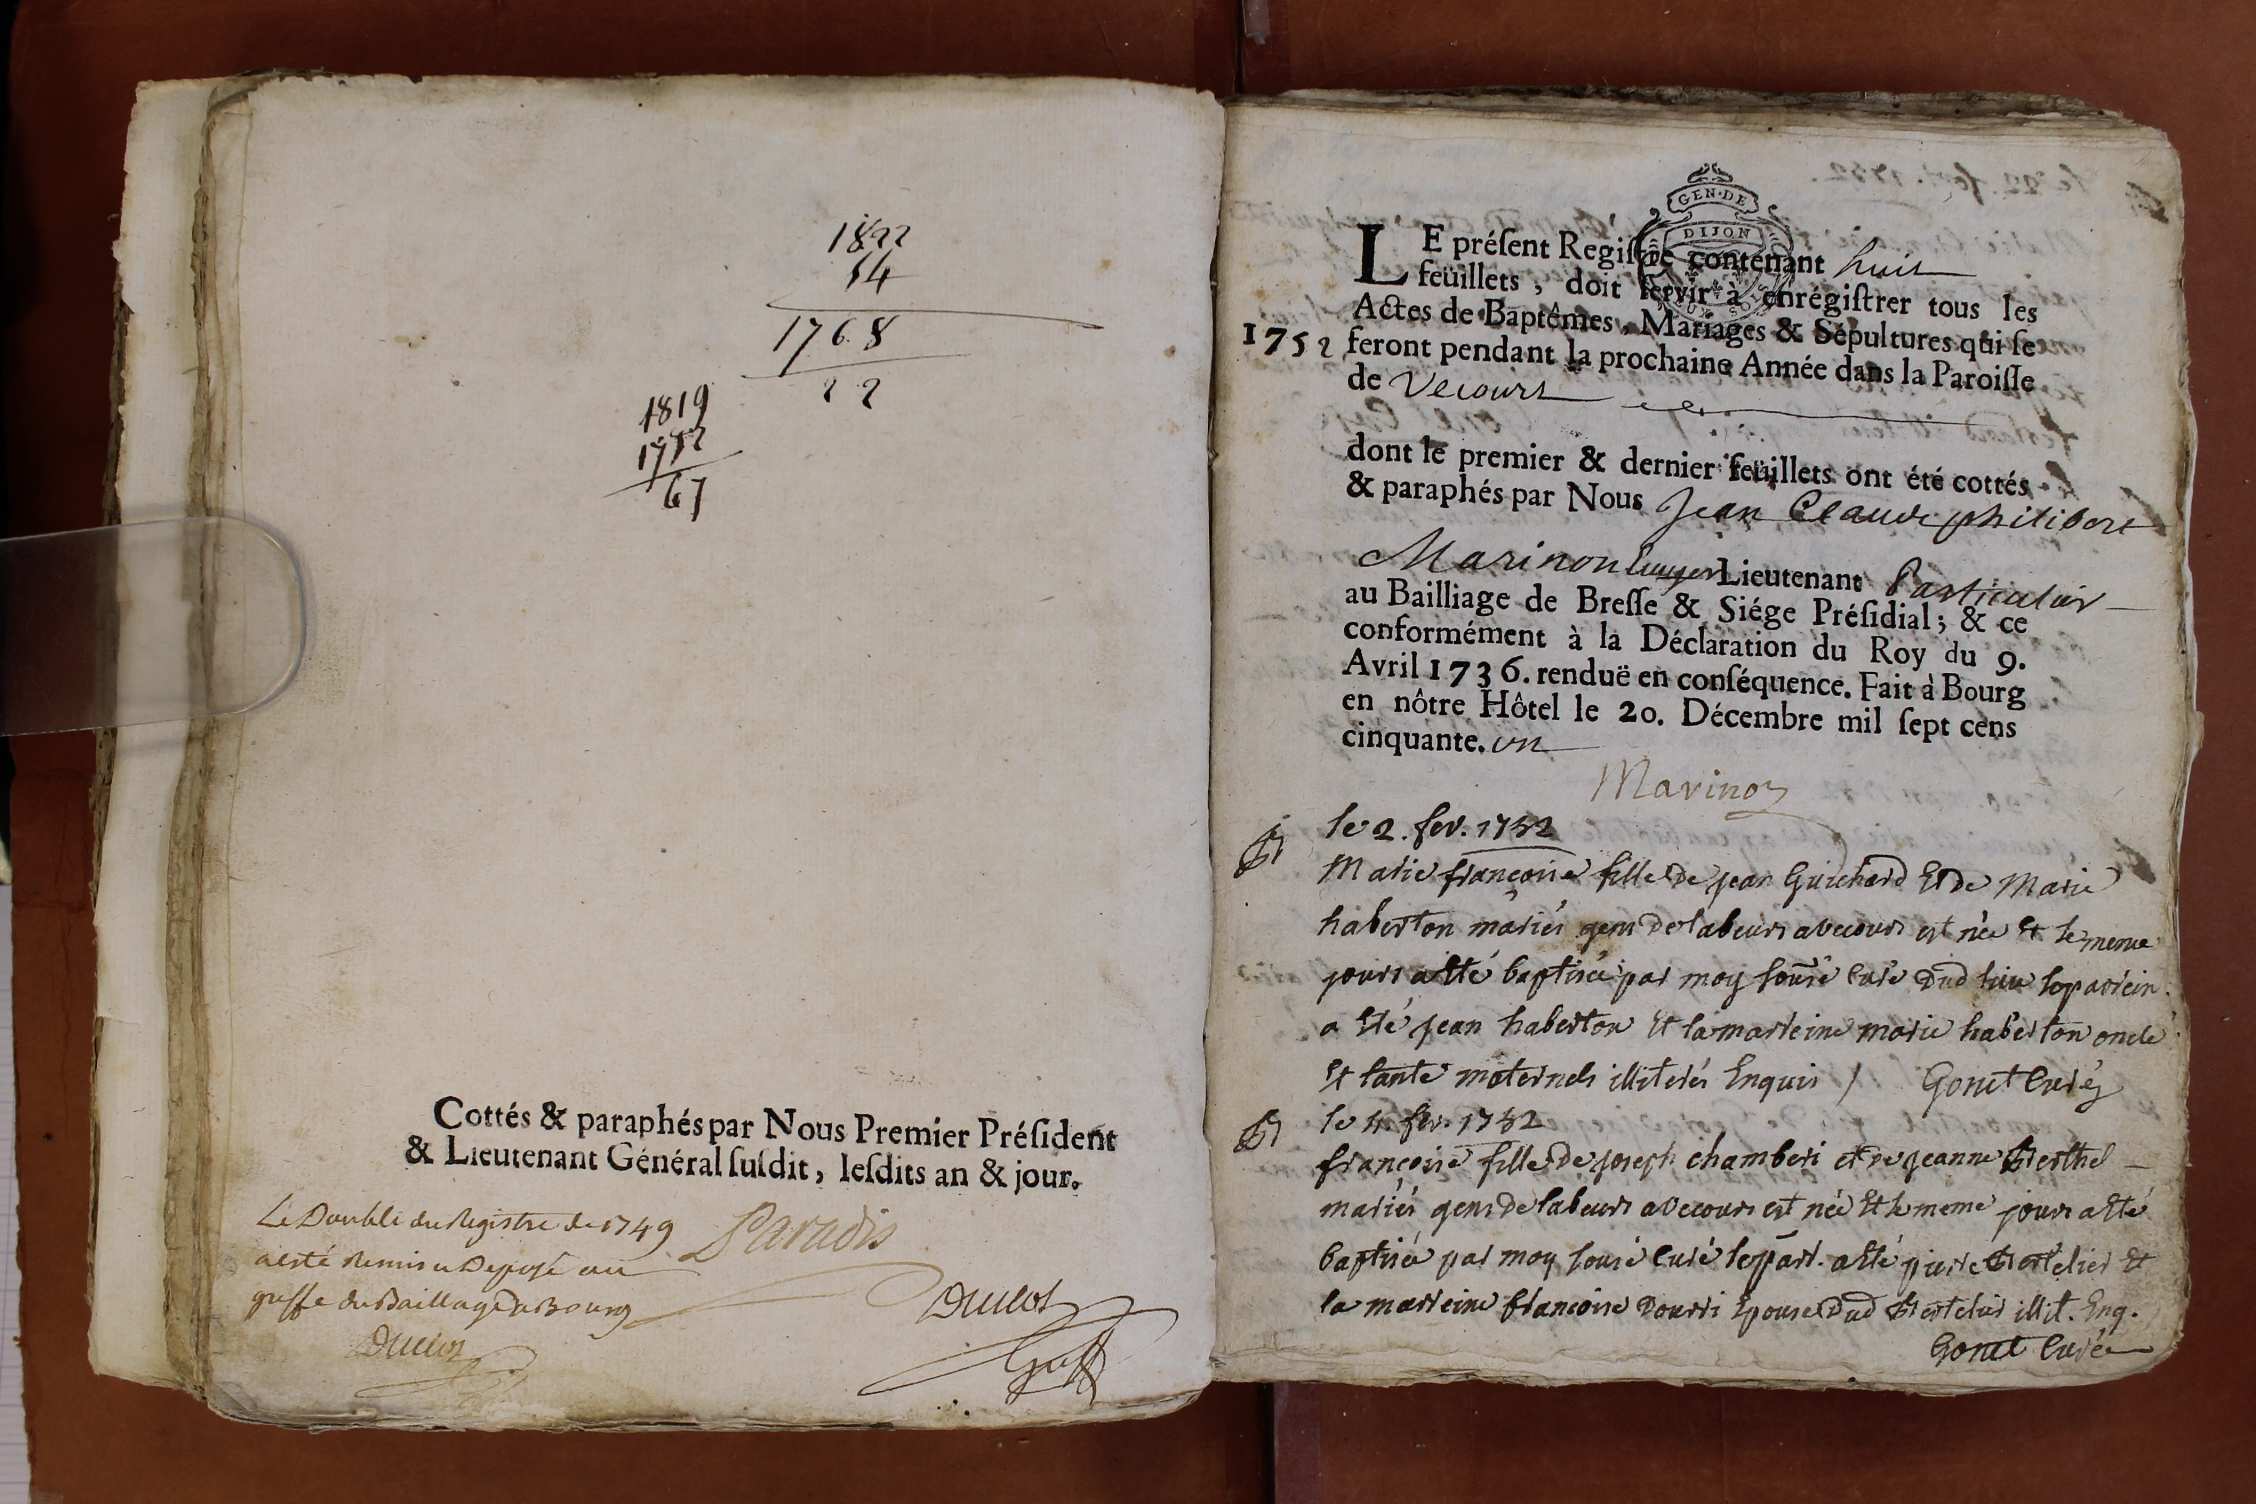 1822
54
1768
22
1819
1752
67
Cottés & paraphés par Nous Premier Préſident
& Lieutenant Général ſuſdit, leſdits an & jour.
Le Double du Registre de 1749
a esté Remis et Deposé au
greffe du Baillage de Bourg
Paradis
GEN·DE
DIJON
LE préſent Regiſtre contenant huit
feüillets, doit ſervir à enrégiſtrer tous les
Actes de Baptêmes, Mariages & Sépultures qui ſe
1752 feront pendant la prochaine Année dans la Paroiſſe
de Vecours
dont le premier & dernier feüillets ont été cottés
& paraphés par Nous Jean Claude philibert
Marinon Lieutenant Particulier
au Bailliage de Breſſe & Siége Préſidial; & ce
conformément à la Déclaration du Roy du 9.
Avril 1736. renduë en conſéquence. Fait à Bourg
en nôtre Hôtel le 20. Décembre mil ſept cens
cinquante. un
Marinon
le 2. fev. 1752
Marie françoise fille de jean Guichard Et de Marie
haberton mariés gens de labeurs a vecours est née Et le meme
jours a Eté baptisée par moy sousé Curé dud lieu le parein
a Eté jean haberton Et la marreine marie haberton oncle
Et tante maternels illiterés Enquis / Gonet Curé
le 4. fev. 1752
françoise fille de joseph chamberi et de jeanne Berthel
mariés gens de labeurs a vecours est née Et le meme jours a Eté
baptisée par moy sousé Curé le parr. a Eté pierre Bertelier Et
la marreine françoise Dourri Epouse Dud Bertelier illit. Enq.
Gonet Curé